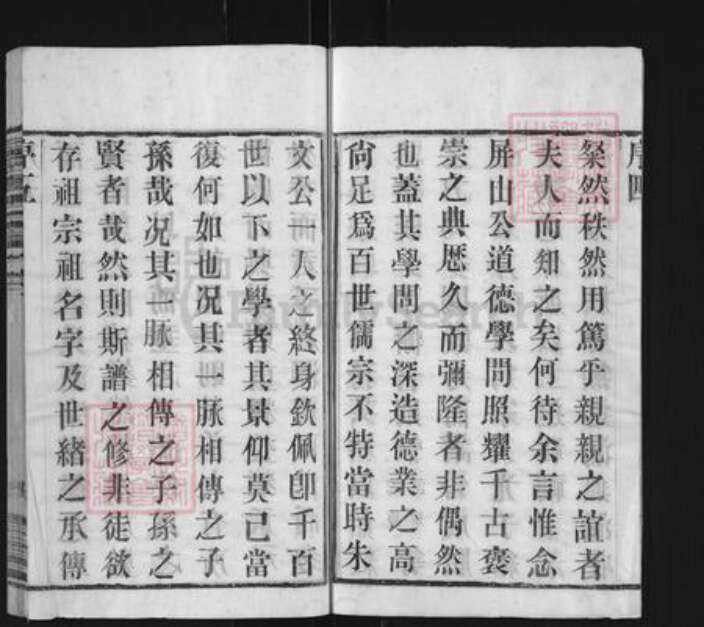 序四
粲然秩然用篤乎親親之誼者
夫人而知之矣何待余言惟念
屏山公道德學問照耀千古褒
崇之典歷久而彌隆者非偶然
也蓋其學問之深造德業之高
尙足爲百世儒宗不特當時朱
文公一人之終身欽佩卽千百
世以下之學者其景仰莫已當
復何如也況其一脈相傳之子
孫哉況其一脈相傳之子孫之
賢者哉然則斯譜之修非徒欲
存祖宗祖名字及世緒之承傳
序五
FamilySearch